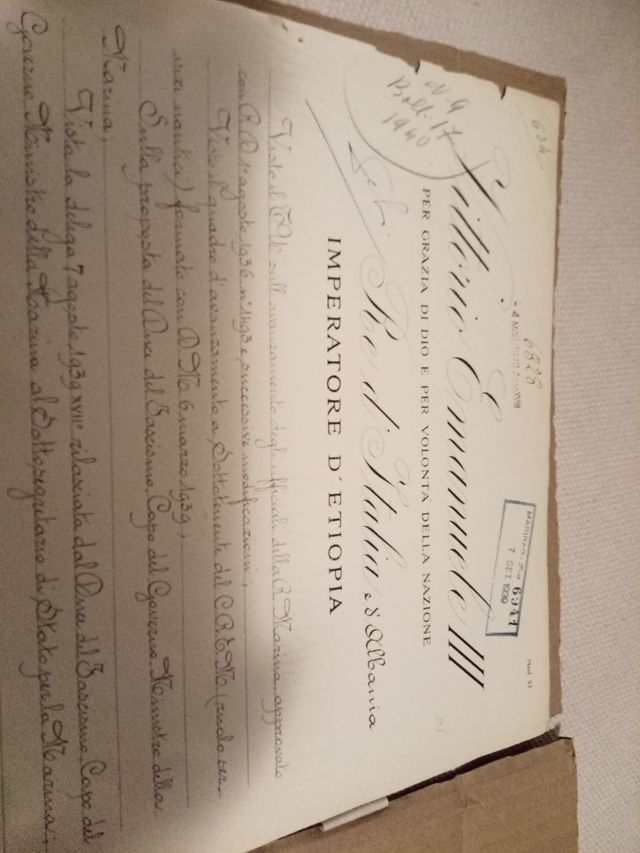 634
6823
N. 9
Boll. 17
1940
6541
7 SET. 1939
Mod. 57
Vittorio Emanuele III
PER GRAZIA DI DIO E PER VOLONTÀ DELLA NAZIONE
Re d'Italia e d'Albania
IMPERATORE D'ETIOPIA
Visto il T.U. sull'avanzamento degli ufficiali della R. Marina, approvato
con R.D. 1° agosto 1936 n° 1493 e successive modificazioni;
Visto il quadro d'avanzamento a Sottotenente del C.R.E.M. (ruolo ser-
vizi nautici) formato con D.M. 6 marzo 1939;
Sulla proposta del Duce del Fascismo, Capo del Governo, Ministro della
Marina,
Vista la delega 7 agosto 1939 XVII° rilasciata dal Duce del Fascismo, Capo del
Governo, Ministro della Marina al Sottosegretario di Stato per la Marina;